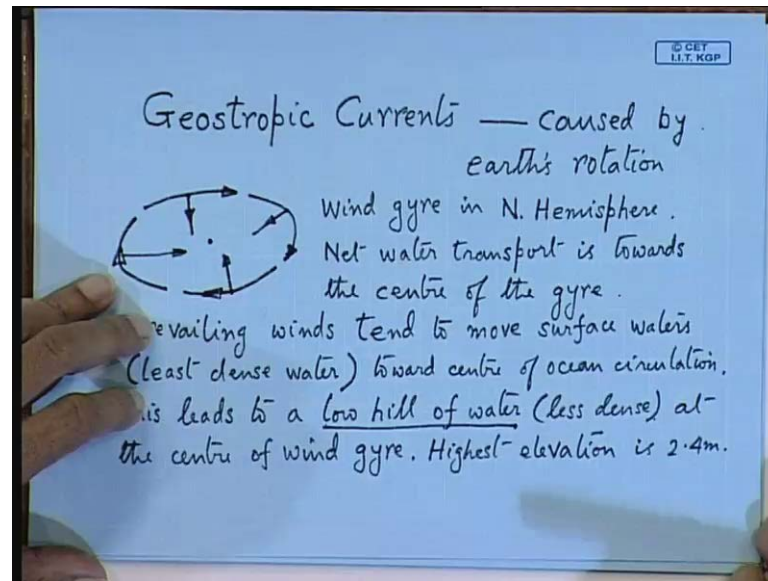 © CET
I.I.T. KGP
Geostropic Currents — caused by
earth's rotation
Wind gyre in N. Hemisphere.
Net water transport is towards
the centre of the gyre.
evailing winds tend to move surface waters
(least dense water) toward centre of ocean circulation.
is leads to a low hill of water (less dense) at
the centre of wind gyre. Highest elevation is 2.4m.